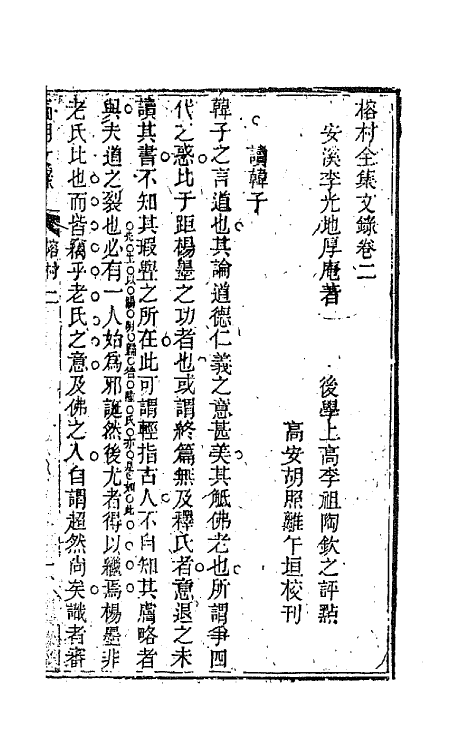 榕村全集文錄卷二
安溪李光地厚庵著
後學上高李祖陶欽之評點
高安胡照離午垣校刋
讀韓子
韓子之言道也其論道德仁義之意甚美其觝佛老也所謂爭四
代之惑比于距楊墨之功者也或謂終篇無及釋氏者意退之未
讀其書不知其瑕舋之所在此可謂輕指古人不自知其膚略者
與夫道之裂也必有一人始為邪誕然後尤者得以繼焉楊墨非
老氏比也而皆竊乎老氏之意及佛之入自謂超然尚矣識者審
榕村二